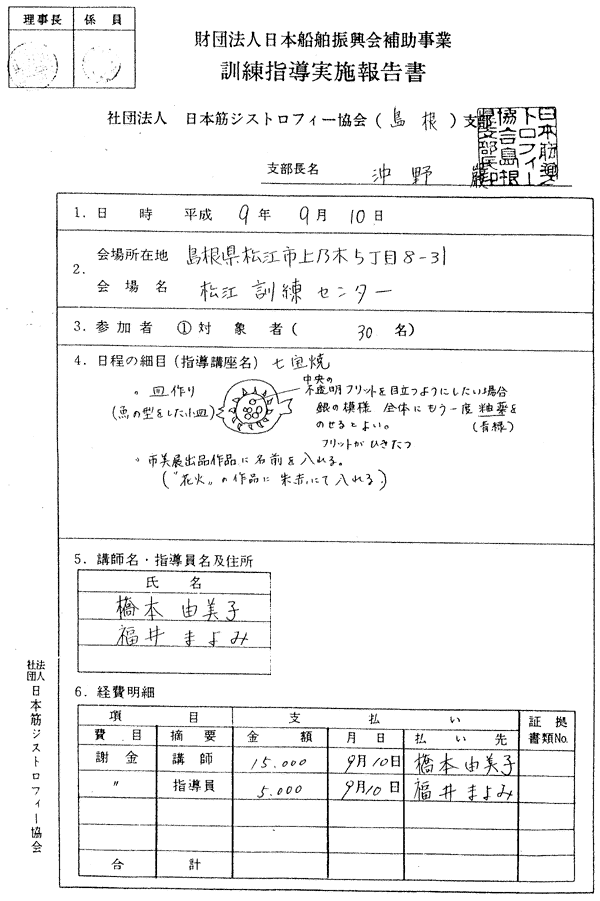 理事長 係員
財団法人日本船舶振興会補助事業
訓練指導実施報告書
社団法人 日本筋ジストロフィー協会(島根)支部
支部長名 沖野 巖
1. 日 時 平成 9年 9月 10日
2. 会場所在地 島根県松江市上乃木5丁目8-31
会場名 松江訓練センター
3. 参加者 ①対象者( 30名)
4. 日程の細目(指導講座名) 七宝焼
。皿作り
(魚の型をした小皿)
中央の
不透明フリットを目立つようにしたい場合
銀の模様 全体にもう一度 釉薬を
のせるとよい。 (青緑)
フリットがひきたつ
。市美展出品作品に名前を入れる。
("花火"の作品に 朱赤にて入れる。)
5. 講師名・指導員名及住所
氏 名
橋本 由美子
福井 まよみ
6. 経費明細
項 目 支 払 い 証拠書類No.
費目 摘要 金額 月日 払い先
謝金 講師 15.000 9月10日 橋本由美子
〃 指導員 5.000 9月10日 福井まよみ
合 計
社団法人 日本筋ジストロフィー協会